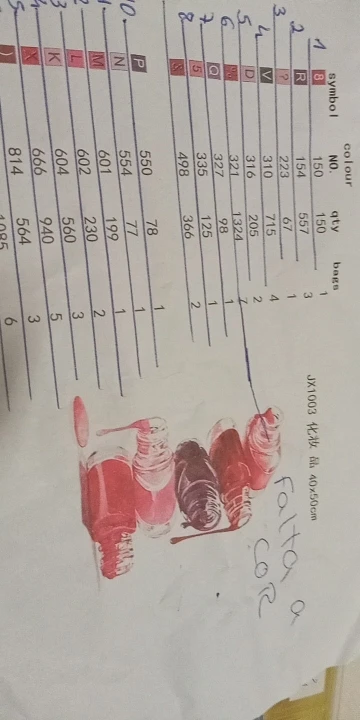 colour
symbol NO. qty bags
1 8 150 150 1
2 R 154 557 3
3 ? 223 67 1
4 V 310 715 4
5 D 316 205 2
6 % 321 1324 7
7 Q 327 98 1
8 5 335 125 1
& 498 366 2
10. P 550 78 1
N 554 77 1
M 601 199 1
L 602 230 2
K 604 560 3
X 666 940 5
) 814 564 3
1085 6
JX1003 化妆 品 40x50cm
Falta a
COR